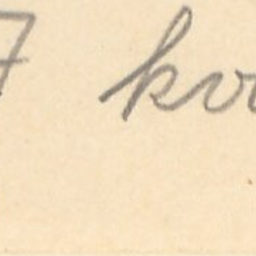 7 kv